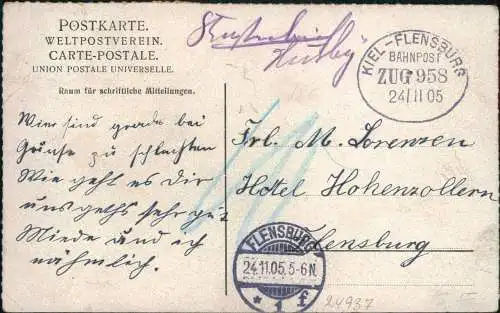 POSTKARTE.
WELTPOSTVEREIN.
CARTE-POSTALE.
UNION POSTALE UNIVERSELLE.
Raum für schriftliche Mitteilungen.
Husby
KIEL-FLENSBURG
BAHNPOST
ZUG 958
24/11 05
Wir sind grade bei
Gänse zu schlachten
Wie geht es Dir
uns gehts sehr gut
Miede und ich
nähmlich.
Frl. M. Lorenzen
Hôtel Hohenzollern
Flensburg
FLENSBURG
24.11.05.5-6N.
* 1 f
24937